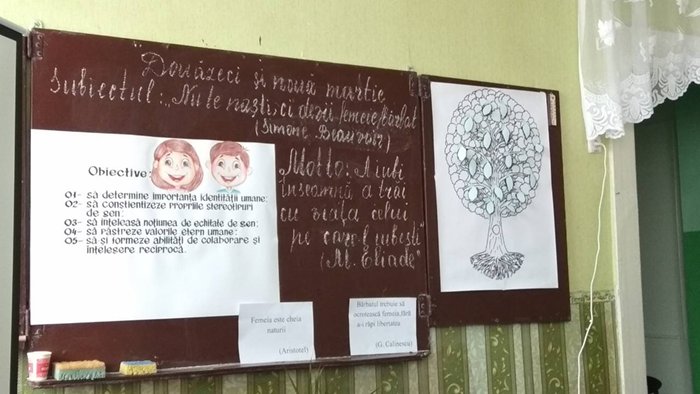 Douăzeci și nouă martie
Subiectul: „Nu te naști, ci devii femeie/bărbat
(Simone Beauvoir)
Motto: A iubi
înseamnă a trăi
cu viața celui,
pe care-l iubești"
(M. Eliade"
Obiective:
O1- să determine importanța identității umane;
O2- să conștientizeze propriile stereotipuri
de gen;
O3- să înțeleasă noțiunea de echitate de gen;
O4- să păstreze valorile etern umane;
O5- să-și formeze abilități de colaborare și
înțelesere reciprocă.
Femeia este cheia
naturii
(Aristotel)
Bărbatul trebuie să
ocrotească femeia,fără
a-i răpi libertatea
(G. Calinescu)